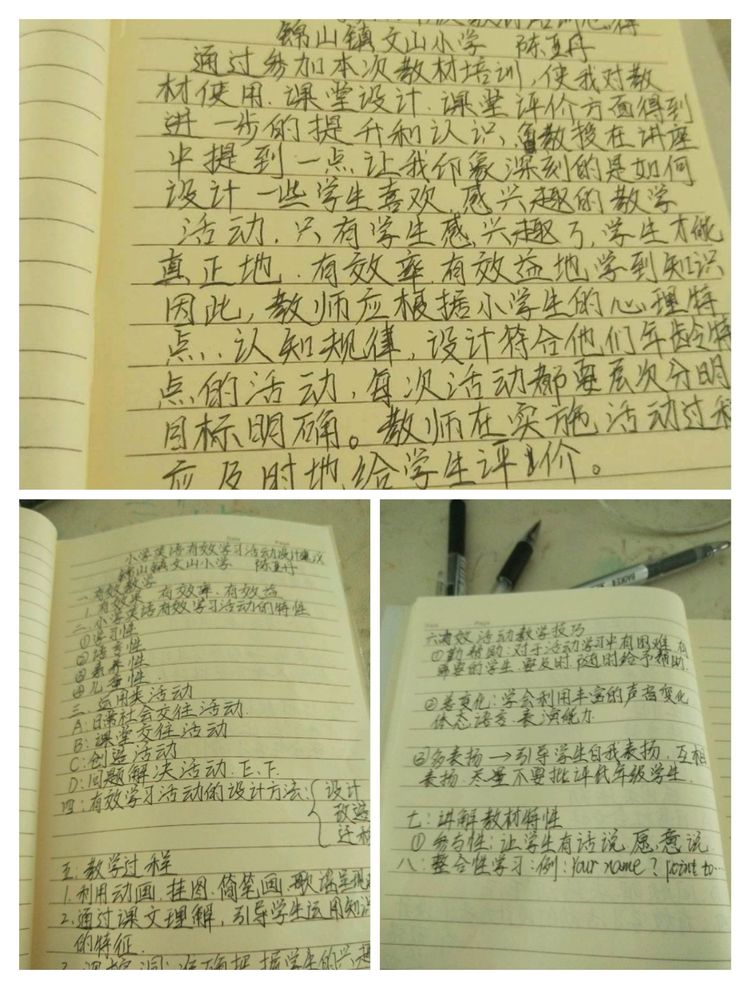 教材活动心得
锦山镇文山小学 陈亚丹
通过参加本次教材培训,使我对教
材使用、课堂设计、课堂评价方面得到
进一步的提升和认识,教授在讲座
中提到一点让我印象深刻的是如何
设计一些学生喜欢,感兴趣的教学
活动,只有学生感兴趣了,学生才能
真正地、有效率,有效益地学到知识
因此,教师应根据小学生的心理特
点、认知规律,设计符合他们年龄特
点的活动,每次活动都要层次分明
目标明确。教师在实施活动过程
应及时地给学生评价。
小学英语有效学习活动设计建议
锦山镇文山小学 陈亚丹
一、有效教学
1.有效果 有效率.有效益
二.小学英语有效学习活动的特性
①学习性
②语言性
③
④儿童性.
三.运用类活动
A:日常社会交往活动.
B:课堂交往活动
C:创造活动
D:问题解决活动.E.F.
四:有效学习活动的设计方法:{设计
改造
迁移
五:教学过程
1.利用动画.挂图.简笔画.歌谣呈现
2.通过课文理解,引导学生运用知识
的特征.
准确把握学生的兴趣
六有效活动教学技巧
①勤帮助:对于活动学习中有困难,有
需要的学生要及时随时给予帮助.
②善变化:学会利用丰富的声音变化
体态语言.表演能力
③多表扬→引导学生自我表扬,互相
表扬.尽量不要批评低年级学生.
七:讲解教材特性
①参与性:让学生有话说愿意说
八:整合性学习:例:Your name? point to…